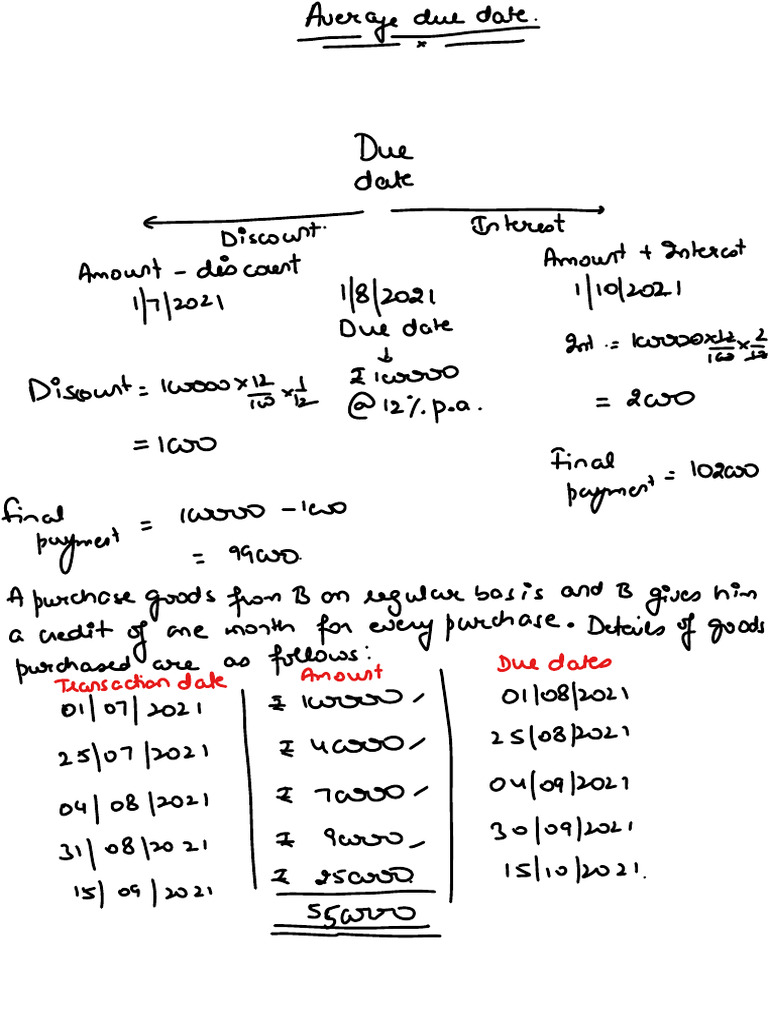 Average due date.
x
Due
date
Discount.
Interest
Amount - discount
Amount + Interest
1/7/2021
1/8/2021
1/10/2021
Due date
↓
Int. = 100000 × 12/100 × 2/12
₹ 100000
Discount = 100000 × 12/100 × 1/12
@ 12% p.a.
= 2000
= 1000
Final
payment = 102000
Final
payment = 100000 - 1000
= 99000.
A purchase goods from B on regular basis and B gives him
a credit of one month for every purchase. Details of goods
purchased are as follows:
Transaction date Amount Due dates
01/07/2021 ₹ 100000 01/08/2021
25/07/2021 ₹ 40000 25/08/2021
04/08/2021 ₹ 70000 04/09/2021
31/08/2021 ₹ 90000 30/09/2021
15/09/2021 ₹ 250000 15/10/2021.
550000